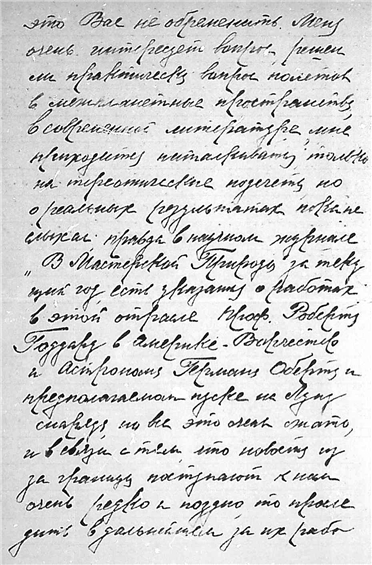 это Вас не обременить. Меня
очень интересует вопрос, решен
ли практически вопрос полетов
в межпланетные пространства
в современной литературе мне
приходится наталкиваться только
на теоретические подсчеты но
о реальных результатах пока не
слыхал правда в научном журнале
„В Мастерской Природы за теку
щий год есть указания о работах
в этой отрасле Проф. Роберта
Годдарда в Америке-
и Астронома Германа Оберта и
предполагаемом пуске на Луну
снаряда но все это очень сжато,
и в связи с тем что новости из
за границы поступают к нам
очень редко и поздно то просле
дить в дальнейшем за их рабо